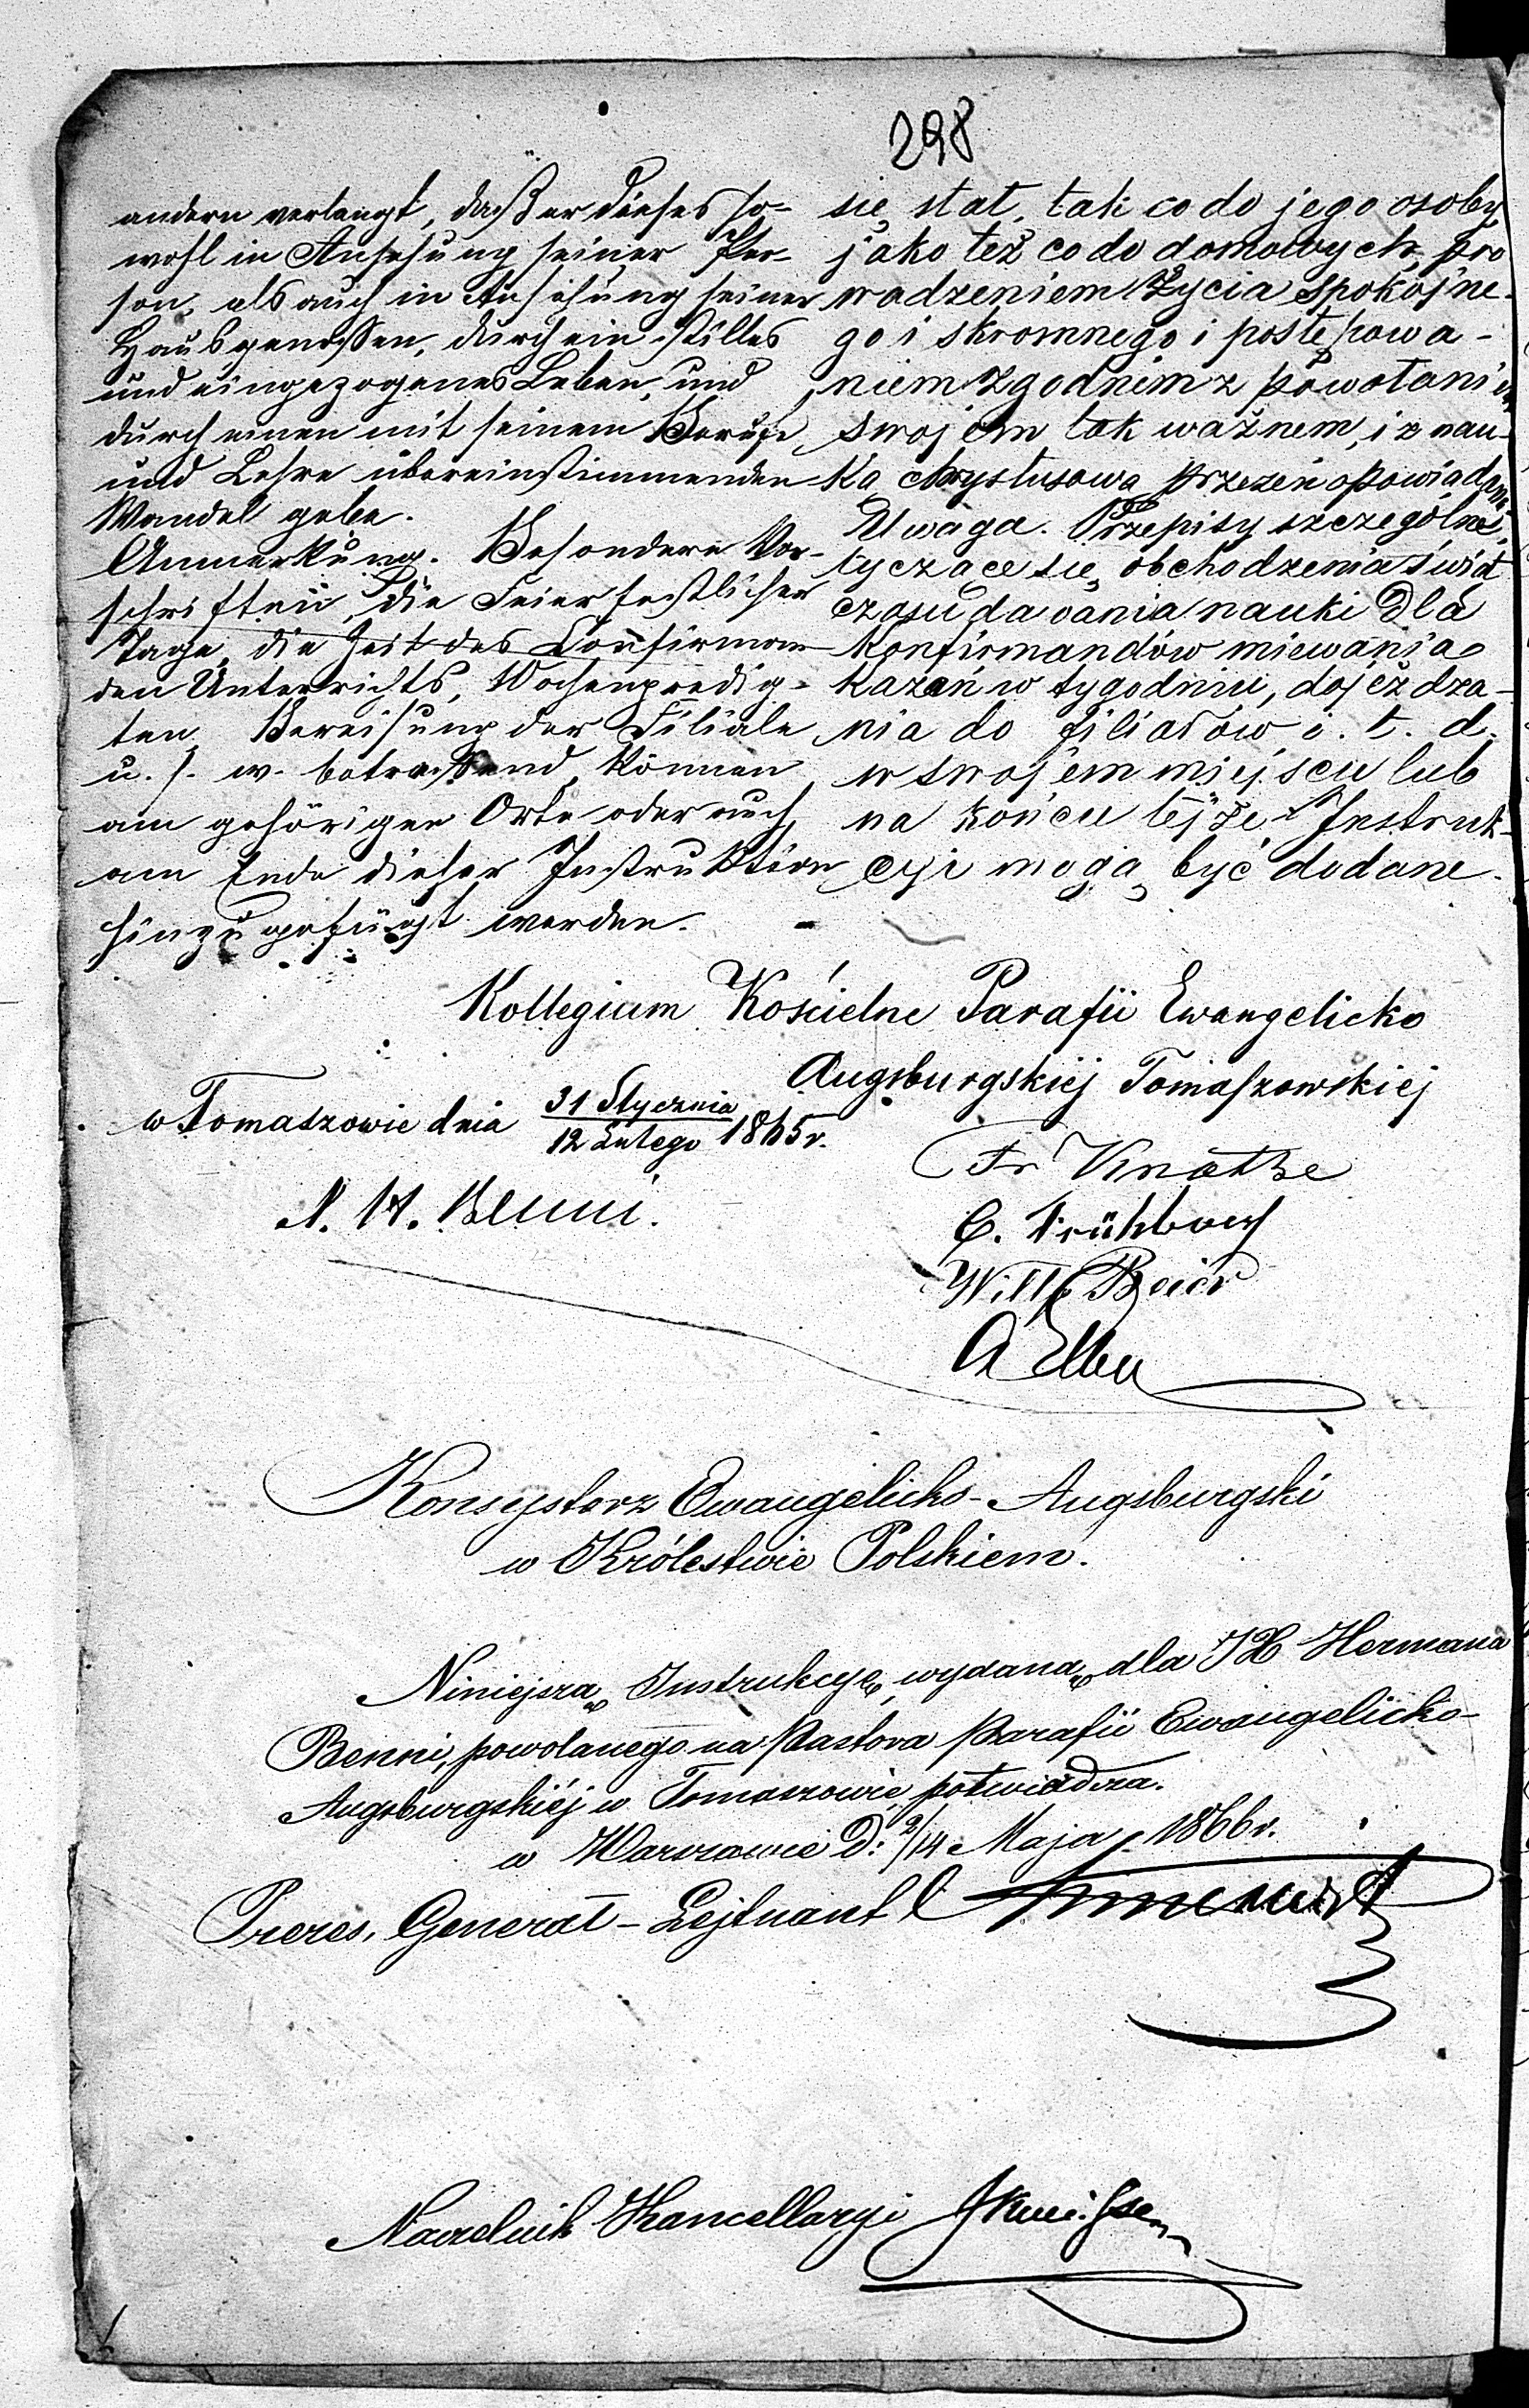 298
andern verlangt, daß er dieses so-
wohl in Ansehung seiner Per-
son, als auch in Ansehung seiner
Hausgenossen, durch ein stilles
und eingezogenes Leben, und
durch einen mit seinem Berufe
und Lehre übereinstimmenden
Wandel gebe.
Anmerkung. Besondere Vor-
schriften, die Feier festlicher
Tage, die Zeit des Confirman-
den Unterrichts, Wochenpredig-
ten, Bereisung der Filiale
u. s. w. betreffend, können
am gehörigen Orte oder auch
am Ende dieser Instruktion
hinzugefügt werden.
się stał, tak co do jego osoby
jako też co do domowych, pro
wadzeniem życia spokojne-
go i skromnego i postępowa-
niem zgodnim z powołaniem
swojem tak ważnem, i z nau-
ką chrystusową przezeń opowiadaną
Uwaga. Przepisy szczególne,
tyczące się obchodzenia świąt
czasu dawania nauki dla
Konfirmandów miewania
kazań w tygodniu, dojeżdża-
nia do filiałów i. t. d.
w swojem miejscu lub
na końcu téjże Instruk-
cyi mogą być dodane.
Kollegium Kościelne Parafii Ewangelicko
Augsburgskiéj Tomaszowskiej
w Tomaszowie dnia 31 Stycznia / 12 Lutego 1865 r.
Fr Knothe
N. H. Benni.
C. Frühbuss
Wilh Beier
A Elbe
Konsystorz Ewangelicko-Augsburgski
w Królestwie Polskiem.
Niniejszą Instrukcyę, wydaną dla JX Hermana
Benni, powołanego na Pastora Parafii Ewangelicko-
Augsburgskiéj w Tomaszowie potwierdza.
w Warszawie d: 2/14 Maja 1866 r.
Prezes, Generał-Lejtnant
Naczelnik Kancellaryi